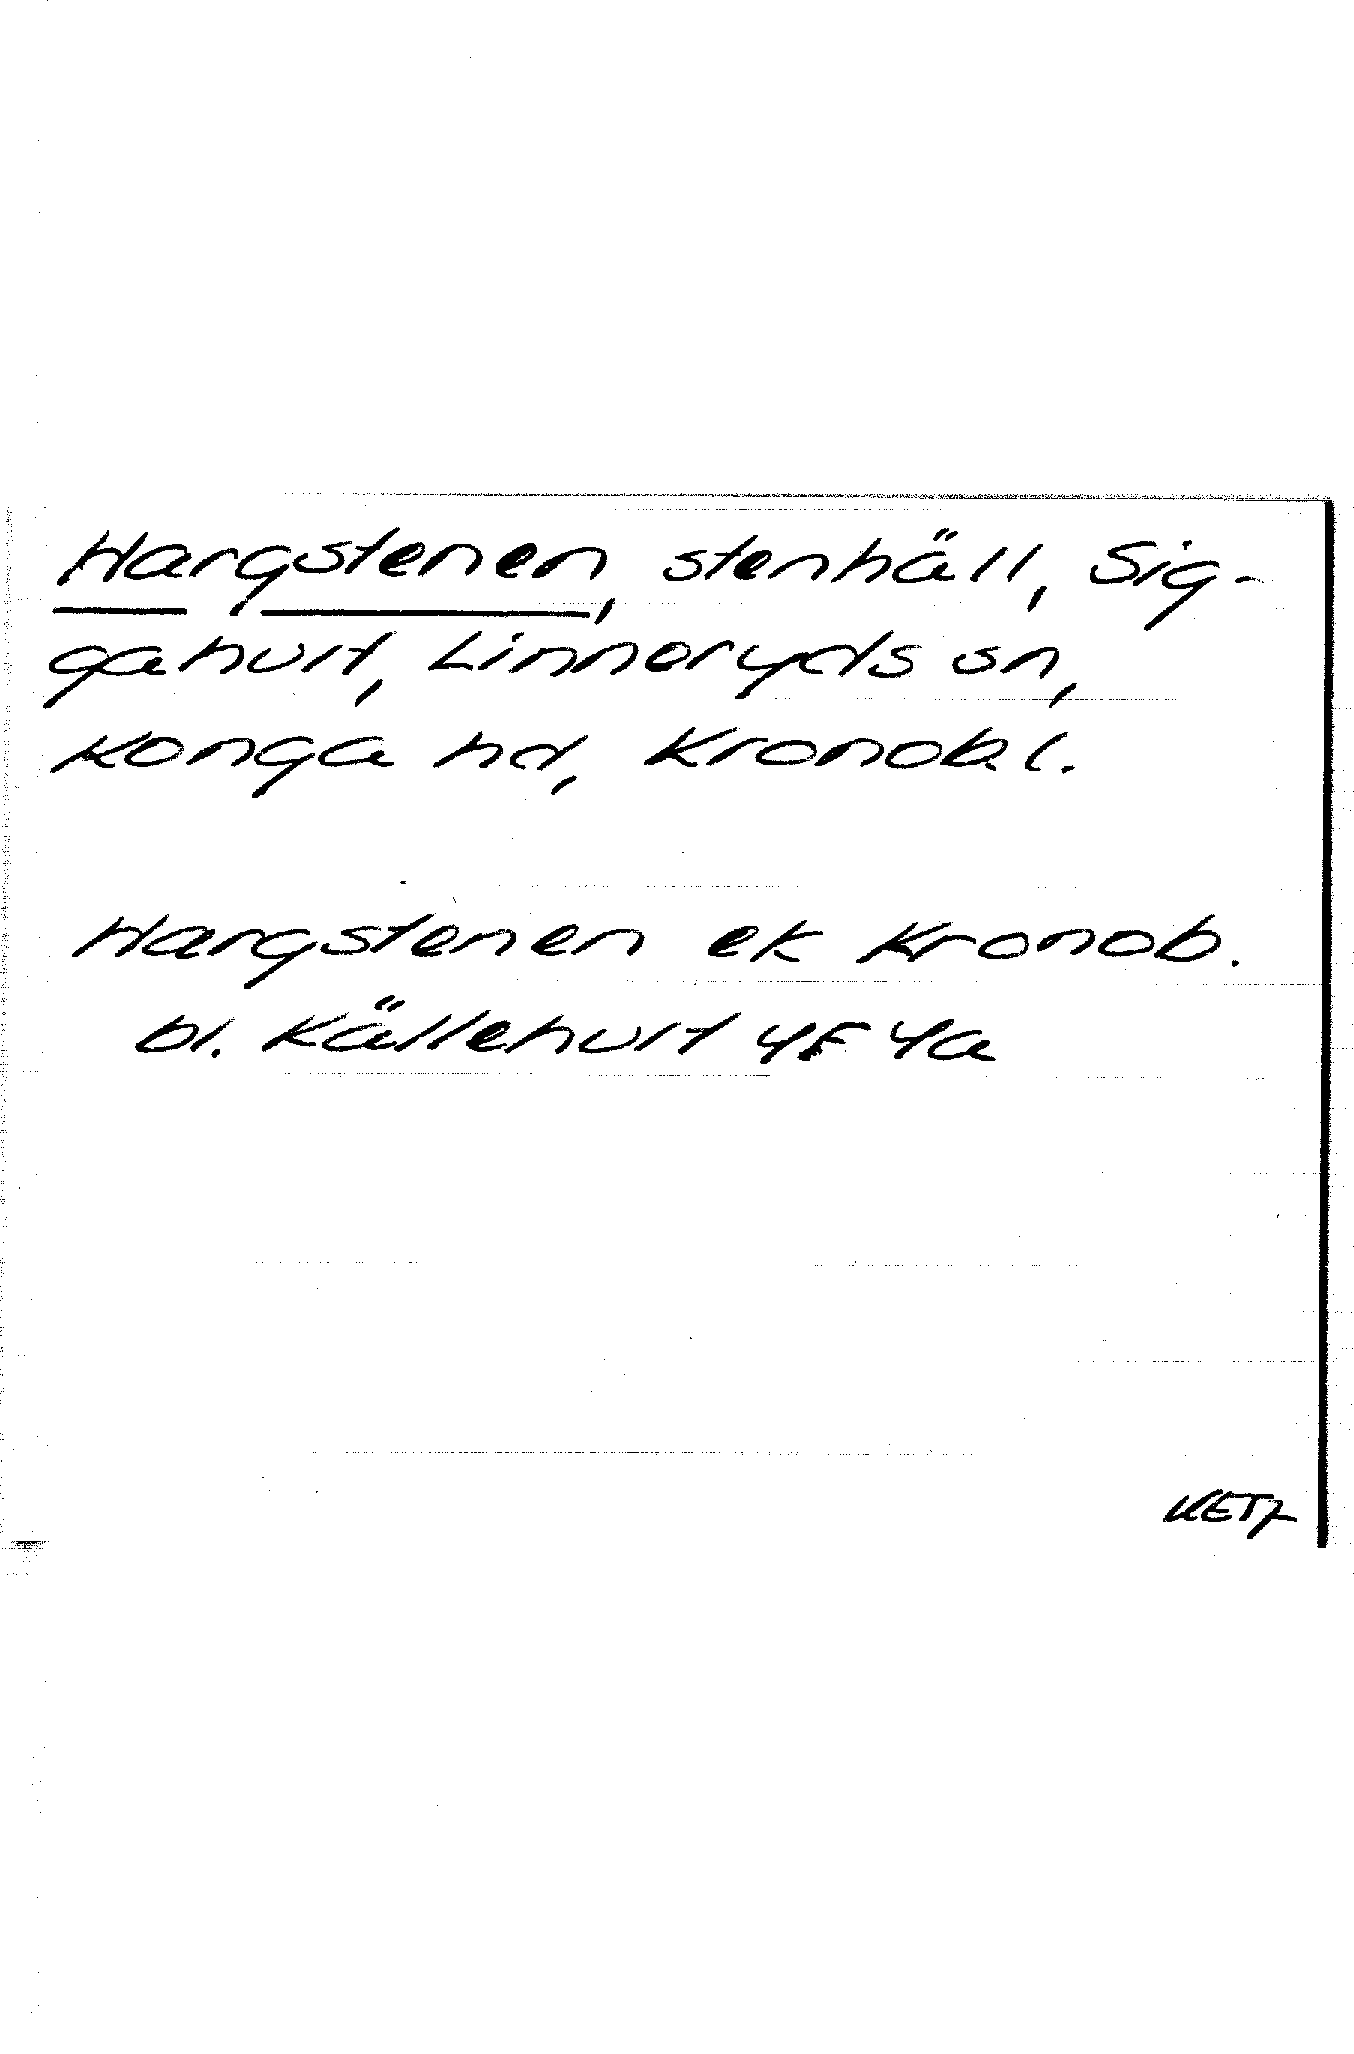 Hargstenen, stenhäll, Sig-
gahult, Linneryds sn,
Konga hd, Kronob l.
Hargstenen ek Kronob.
bl. Källehult 4F 4a